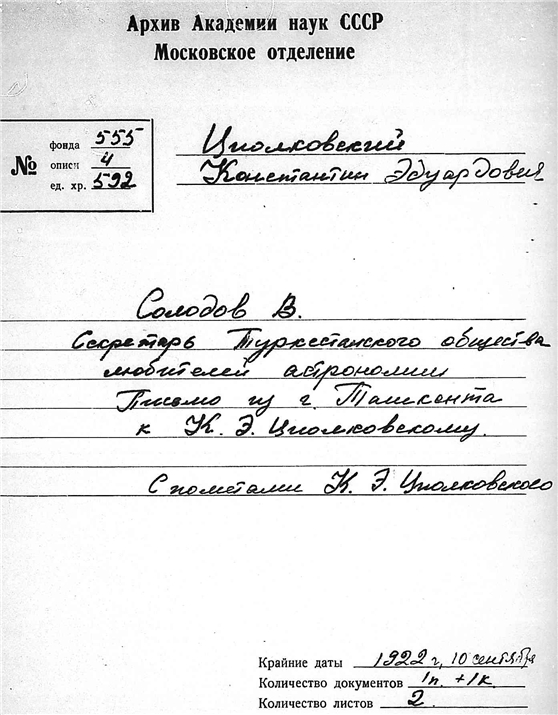 Архив Академии наук СССР
Московское отделение
№
фонда 555
описи 4
ед. хр. 592
Циолковский
Константин Эдуардович
Солодов В.
Секретарь Туркестанского общества
любителей астрономии
Письмо из г. Ташкента
к К. Э. Циолковскому.
С пометами К. Э. Циолковского
Крайние даты 1922 г, 10 сентября
Количество документов 1п. +1к.
Количество листов 2